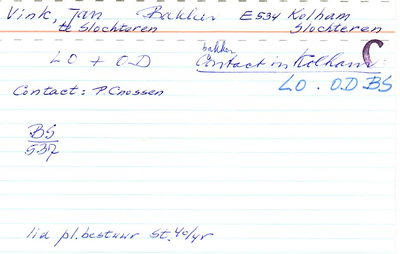 Vink, Jan Bakker E534 Kolham
te Slochteren Slochteren
LO + O.D bakker
Contact in Kolham: C
LO . O.D BS
Contact: P. Cnossen
BS
537
lid pl. bestuur St. 40/45